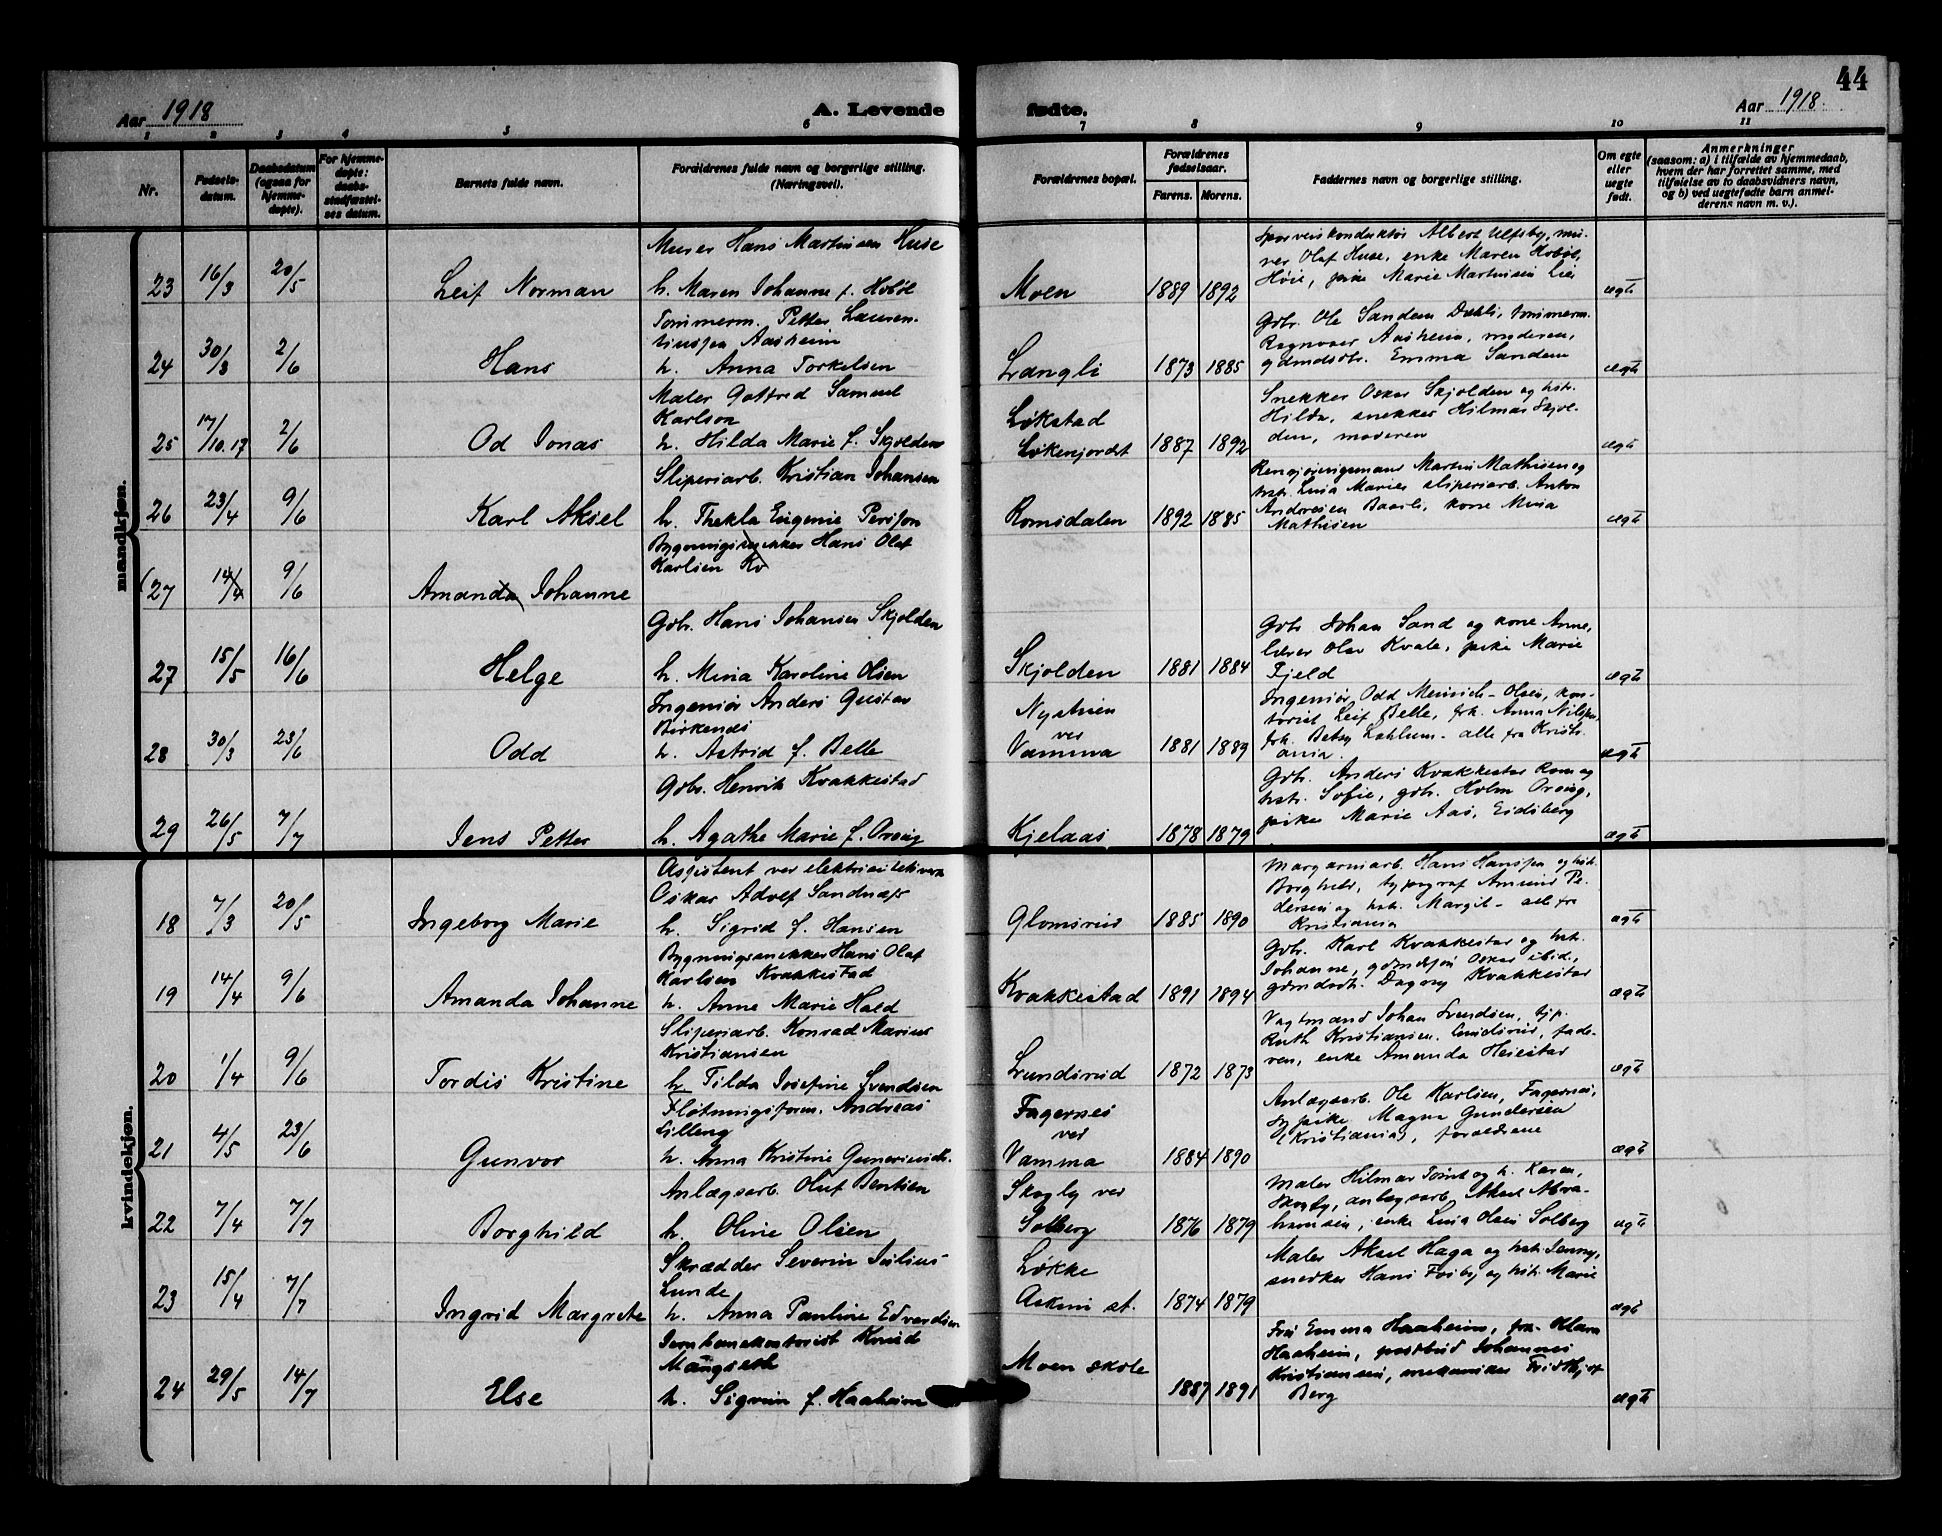 44
Aar 1918
A. Levende fødte.
Aar 1918.
1 2 3 4 5 6 7 8 9 10 11
Nr.
Fødsels-
datum.
Daabsdatum
(ogsaa for
hjemme-
døpte).
For hjemme-
døpte:
daabs-
stadfæstel-
ses datum.
Barnets fulde navn.
Forældrenes fulde navn og borgerlige stilling.
(Næringsvei).
Forældrenes bopæl.
Forældrenes
fødselsaar.
Farens. Morens.
Faddernes navn og borgerlige stilling.
Om egte
eller
uegte
født.
Anmerkninger
(saasom: a) i tilfælde av hjemmedaab,
hvem der har forrettet samme, med
tilføielse av to daabsvidners navn,
og b) ved uegtefødte barn anmel-
derens navn m. v.).
mandkjøn.
23 16/3 20/5 Leif Norman
Murer Hans Martinsen Huse
h. Maren Johanne f. Hobøl
Moen 1889 1892
Sporveiskonduktør Albert Ulfsby, mu-
rer Olaf Huse, enke Maren Hobøl,
Høie, pike Marie Martinsen Lie
ægte
24 30/3 2/6 Hans
Tømmerm. Petter Lauren-
tiussen Aasheim
h. Anna Torkelsen
Langli 1873 1885
Gbr. Ole Sandem Dahli, tømmerm.
Ragnvald Aasheim, moderen,
gdmdsdtr. Emma Sandem
ægte
25 17/10.17 2/6 Od Jonas
Maler Gotfred Samuel
Karlson
h. Hilda Marie f. Skjolden
Løkstad
Løkenjordet 1887 1892
Snekker Oskar Skjolden og hstr.
Hilda, snekker Hilmar Skjol-
den, moderen
ægte
26 23/4 9/6 Karl Aksel
Sliperiarb. Kristian Johansen
h. Thekla Eugenie Persson
Romsdalen 1892 1885
Rengjøringsmand Martin Mathisen og
hstr. Lina Marie, sliperiarb. Anton
Andresen Baarli, kone Mina
Mathisen
ægte
(27 14/4 9/6 Amanda Johanne
Bygningssnekker Hans Olaf
Karlsen Kv
27 15/5 16/6 Helge
Gbr. Hans Johansen Skjolden
h. Mina Karoline Olsen
Skjolden 1881 1884
Gbr. Johan Sand og kone Anne,
lærer Olav Kvale, pike Marie
Fjeld
ægte
28 30/3 23/6 Odd
Ingeniør Anders Gustav
Birkenes
h. Astrid f. Belle
Nystuen
ved
Vamma 1881 1889
Ingeniør Odd Meinich-Olsen, kon-
torist Leif Belle, frk. Anna Nilsen,
frk. Betsy - alle fra Kristi-
ania.
ægte
29 26/5 7/7 Jens Petter
Gbr. Henrik Kvakkestad
h. Agathe Marie f. Oraug
Kjelaas 1878 1879
Gbr. Anders Kvakkestad Rom og
hstr. Sofie, gbr. Holm Oraug,
pike Marie Aas, Eidsberg
ægte
kvindekjøn.
18 7/3 20/5 Ingeborg Marie
Assistent ved elektricitetsverk
Oskar Adolf Sandnæss
h. Sigrid f. Hansen
Glomsrud 1885 1890
Margarinarb. Hans Hanssen og hstr.
Borghild, typograf Amund Pe-
dersen og hstr. Margit - alle fra
Kristiania
ægte
19 14/4 9/6 Amanda Johanne
Bygningssnekker Hans Olaf
Karlsen Kvakkestad
h. Anne Marie Hald
Kvakkestad 1891 1894
Gbr. Karl Kvakkestad og hstr.
Johanne, gdmdssøn Oskar ibid.,
gdmdsdtr. Dagny Kvakkestad
ægte
20 1/4 9/6 Tordis Kristine
Sliperiarb. Konrad Marius
Kristiansen
h. Tilda Josefine Svendsen
Lundsrud 1872 1873
Vagtmand Johan Svendsen, tjp.
Ruth Kristiansen Lundsrud, fade-
ren, enke Amanda Heiestad
ægte
21 4/5 23/6 Gunvor
Fløtningsform. Andreas
Lilleng
h. Anna Kristine
Fagernes
ved
Vamma 1884 1890
Anlægsarb. Ole Karlsen, Fagernes,
sypike Magna Gundersen
(Kristiania), forældrene
ægte
22 7/4 7/7 Borghild
Anlægsarb. Oluf Bentsen
h. Oline Olsen
Skogly ved
Solberg 1876 1879
Maler Hilmar og h. Karen,
anlægsarb. Aksel Abra-
hamsen, enke Lina Olsen Solberg
ægte
23 15/4 7/7 Ingrid Margrete
Skrædder Severin Julius
Lunde
h. Anna Pauline Edvardsen
Løkke
Askim st. 1874 1879
Maler Aksel Haga og hstr. Jenny,
snedker Hans og hstr. Marie
ægte
24 29/5 14/7 Else
Jernbanekontorist Knud
Mangseth
h. Sigrun f. Haaheim
Moen skole
1887 1891
Fru Emma Haaheim, frk. Klara
Haaheim, postbud Johannes
Kristiansen, mekaniker Fridthjof
Berg
ægte